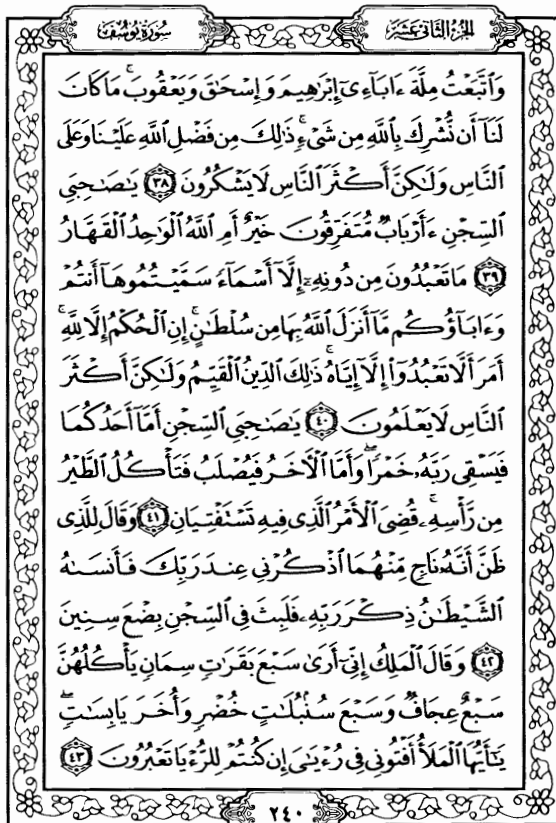 سُورَةُ يُوسُفَ
الجُزْءُ الثَّانِي عَشَرَ
وَاتَّبَعْتُ مِلَّةَ ءَابَآءِىٓ إِبْرَٰهِيمَ وَإِسْحَٰقَ وَيَعْقُوبَ ۚ مَا كَانَ
لَنَآ أَن نُّشْرِكَ بِٱللَّهِ مِن شَىْءٍ ۚ ذَٰلِكَ مِن فَضْلِ ٱللَّهِ عَلَيْنَا وَعَلَى
ٱلنَّاسِ وَلَٰكِنَّ أَكْثَرَ ٱلنَّاسِ لَا يَشْكُرُونَ ٣٨ يَٰصَٰحِبَىِ
ٱلسِّجْنِ ءَأَرْبَابٌ مُّتَفَرِّقُونَ خَيْرٌ أَمِ ٱللَّهُ ٱلْوَٰحِدُ ٱلْقَهَّارُ
٣٩ مَا تَعْبُدُونَ مِن دُونِهِۦٓ إِلَّآ أَسْمَآءً سَمَّيْتُمُوهَآ أَنتُمْ
وَءَابَآؤُكُم مَّآ أَنزَلَ ٱللَّهُ بِهَا مِن سُلْطَٰنٍ ۚ إِنِ ٱلْحُكْمُ إِلَّا لِلَّهِ ۚ
أَمَرَ أَلَّا تَعْبُدُوٓا۟ إِلَّآ إِيَّاهُ ۚ ذَٰلِكَ ٱلدِّينُ ٱلْقَيِّمُ وَلَٰكِنَّ أَكْثَرَ
ٱلنَّاسِ لَا يَعْلَمُونَ ٤٠ يَٰصَٰحِبَىِ ٱلسِّجْنِ أَمَّآ أَحَدُكُمَا
فَيَسْقِى رَبَّهُۥ خَمْرًا ۖ وَأَمَّا ٱلْءَاخَرُ فَيُصْلَبُ فَتَأْكُلُ ٱلطَّيْرُ
مِن رَّأْسِهِۦ ۚ قُضِىَ ٱلْأَمْرُ ٱلَّذِى فِيهِ تَسْتَفْتِيَانِ ٤١ وَقَالَ لِلَّذِى
ظَنَّ أَنَّهُۥ نَاجٍ مِّنْهُمَا ٱذْكُرْنِى عِندَ رَبِّكَ فَأَنسَىٰهُ
ٱلشَّيْطَٰنُ ذِكْرَ رَبِّهِۦ فَلَبِثَ فِى ٱلسِّجْنِ بِضْعَ سِنِينَ
٤٢ وَقَالَ ٱلْمَلِكُ إِنِّىٓ أَرَىٰ سَبْعَ بَقَرَٰتٍ سِمَانٍ يَأْكُلُهُنَّ
سَبْعٌ عِجَافٌ وَسَبْعَ سُنۢبُلَٰتٍ خُضْرٍ وَأُخَرَ يَابِسَٰتٍ ۖ
يَٰٓأَيُّهَا ٱلْمَلَأُ أَفْتُونِى فِى رُءْيَٰىَ إِن كُنتُمْ لِلرُّءْيَا تَعْبُرُونَ ٤٣
٢٤٠